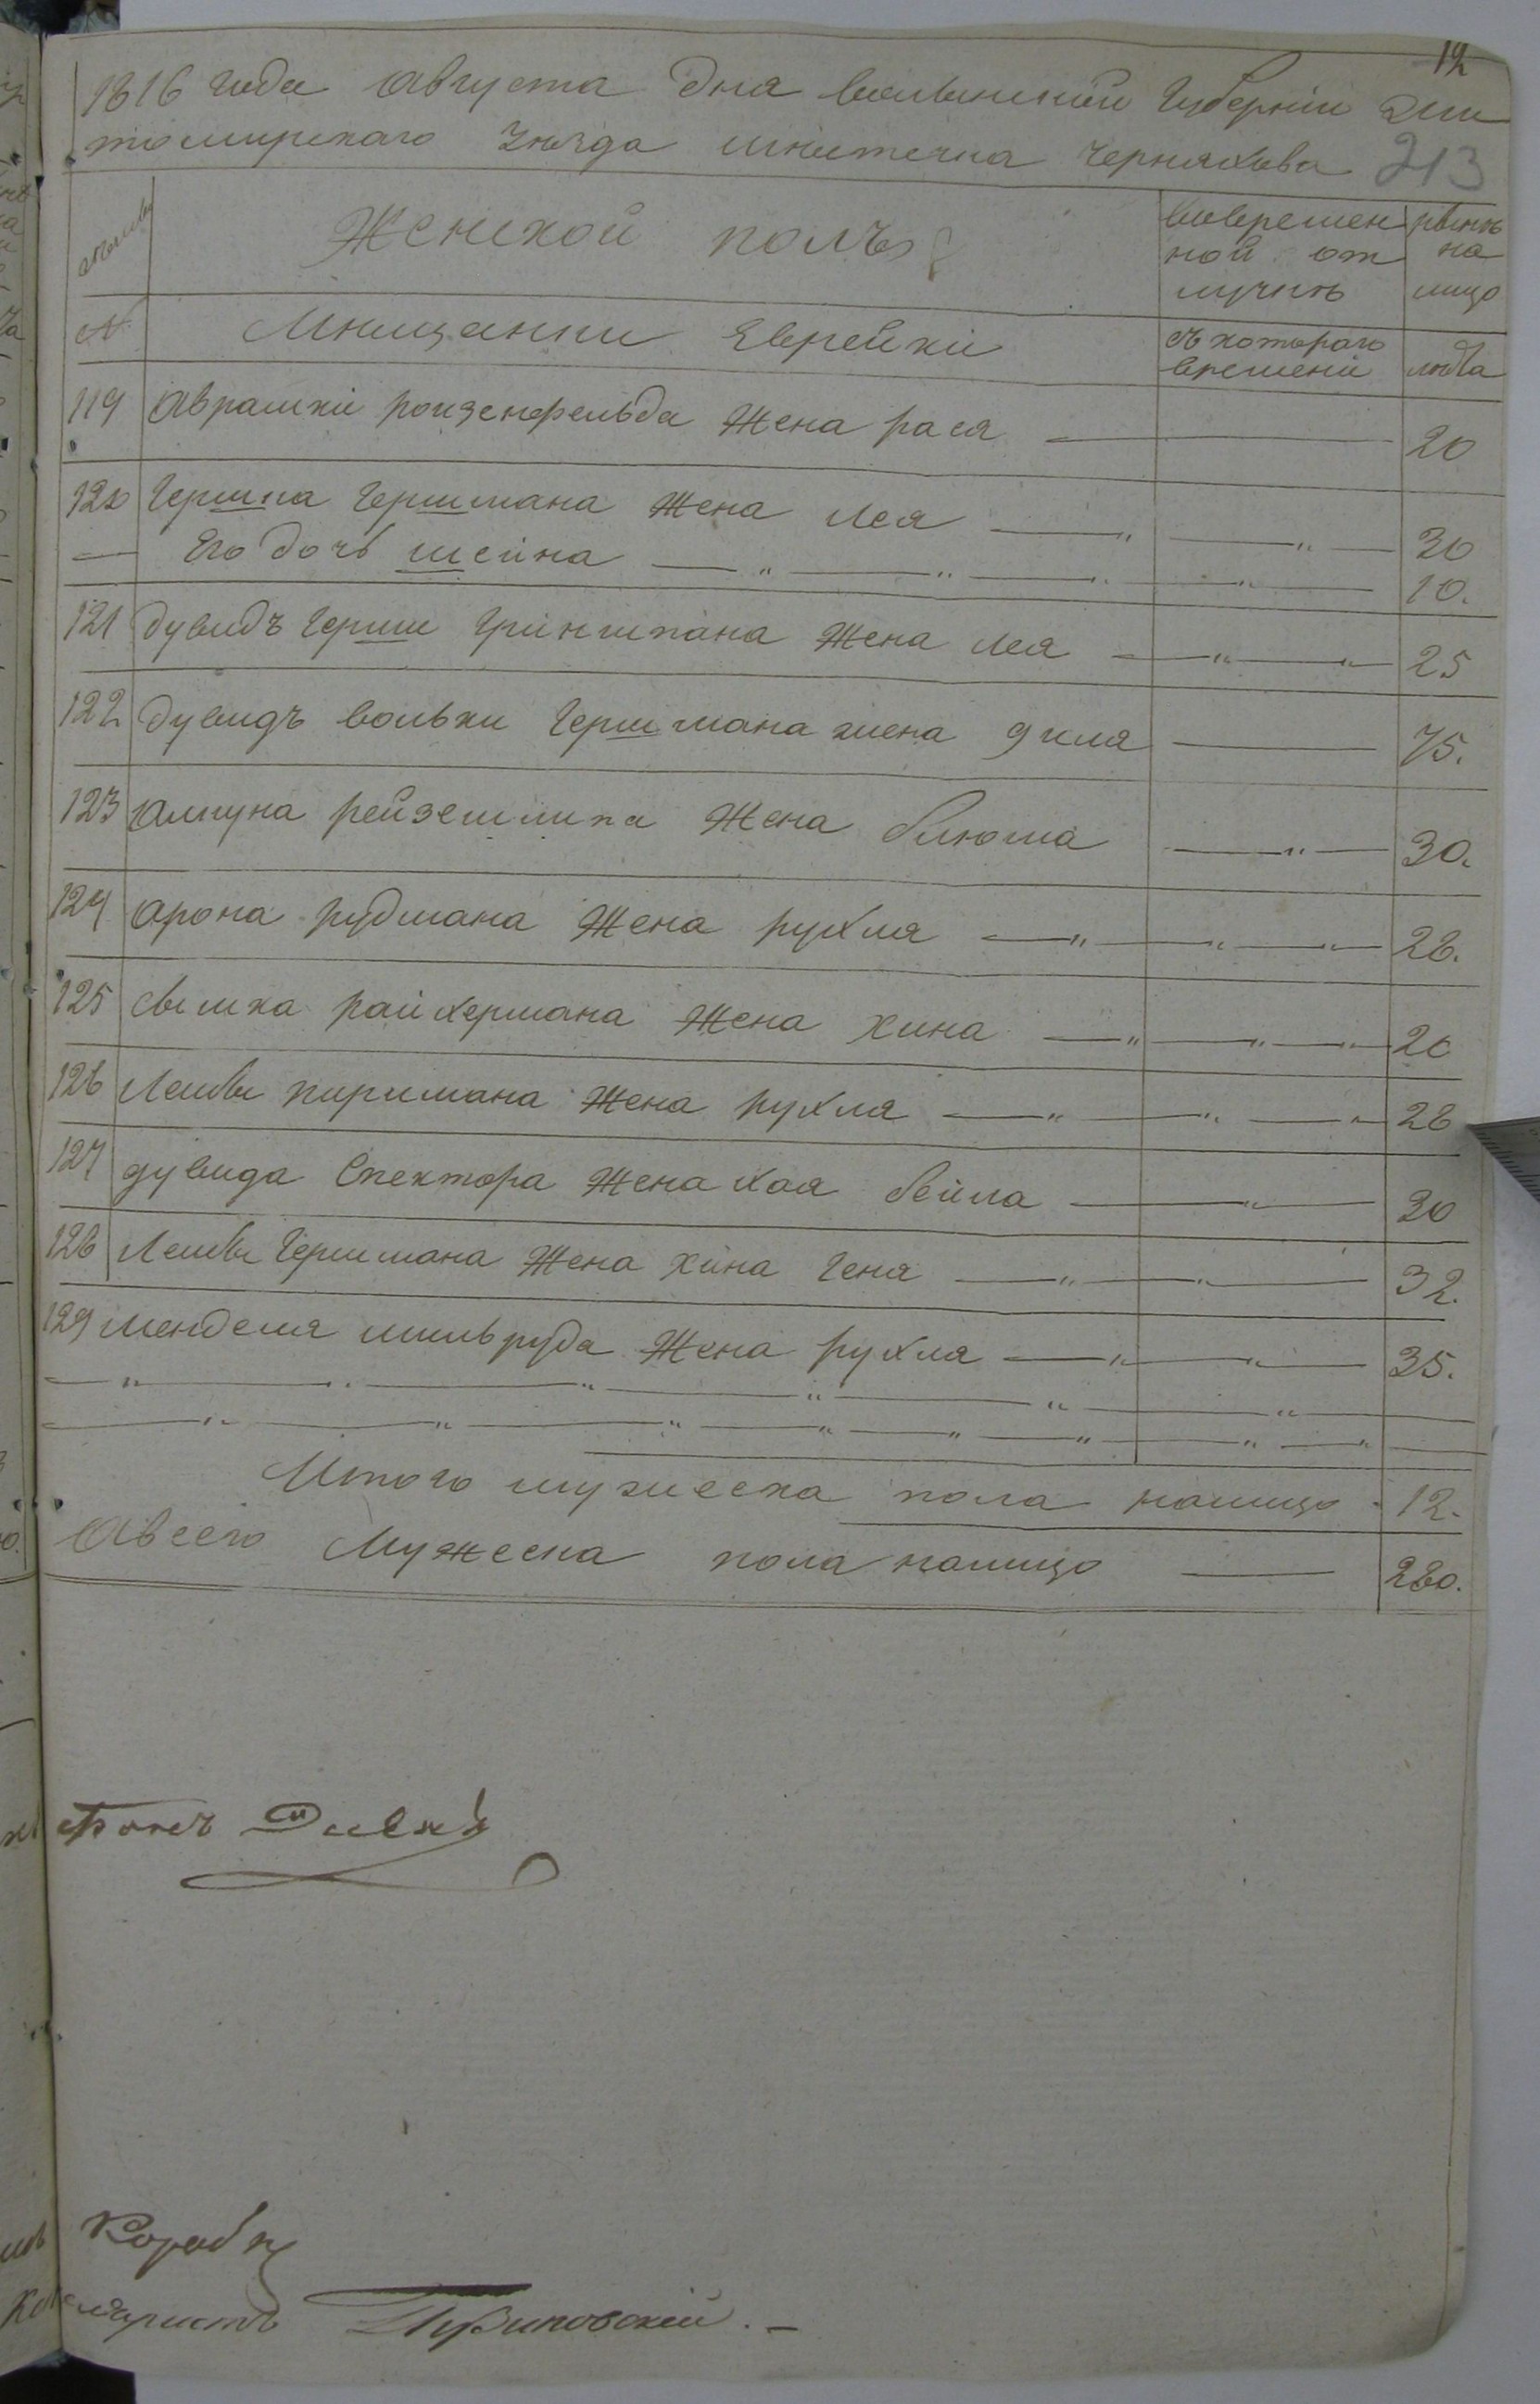 12
1816 года августа дня волынской губернии жи
томирскаго уезда местечка Черняхова 213
Женской полъ
вовремен
ной от
лучке
ныне
на
лицо
№ Мещанки Еврейки
съ котораго
времени
лета
119 Аврамки ройзенфельда Жена рася 20
120 Гершка Гершмана Жена Лея 30
Его дочь шейна 10.
121 Дувидъ Герши Гриншпана Жена Лея 25
122 Дувидъ вольки Гершмана жена 75.
123 Жена блюма 30.
124 Арона рудмана Жена рухля 28.
125 райхермана Жена хина 20
126 Лейбы Жена рухля 28
127 дувида Спектора Жена хая бейла 30
128 Лейбы Гершмана Жена хина геня 32.
129 менделя Жена рухля 35.
Итого мужеска пола налицо 12.
Авсего Мужеска пола налицо 280.